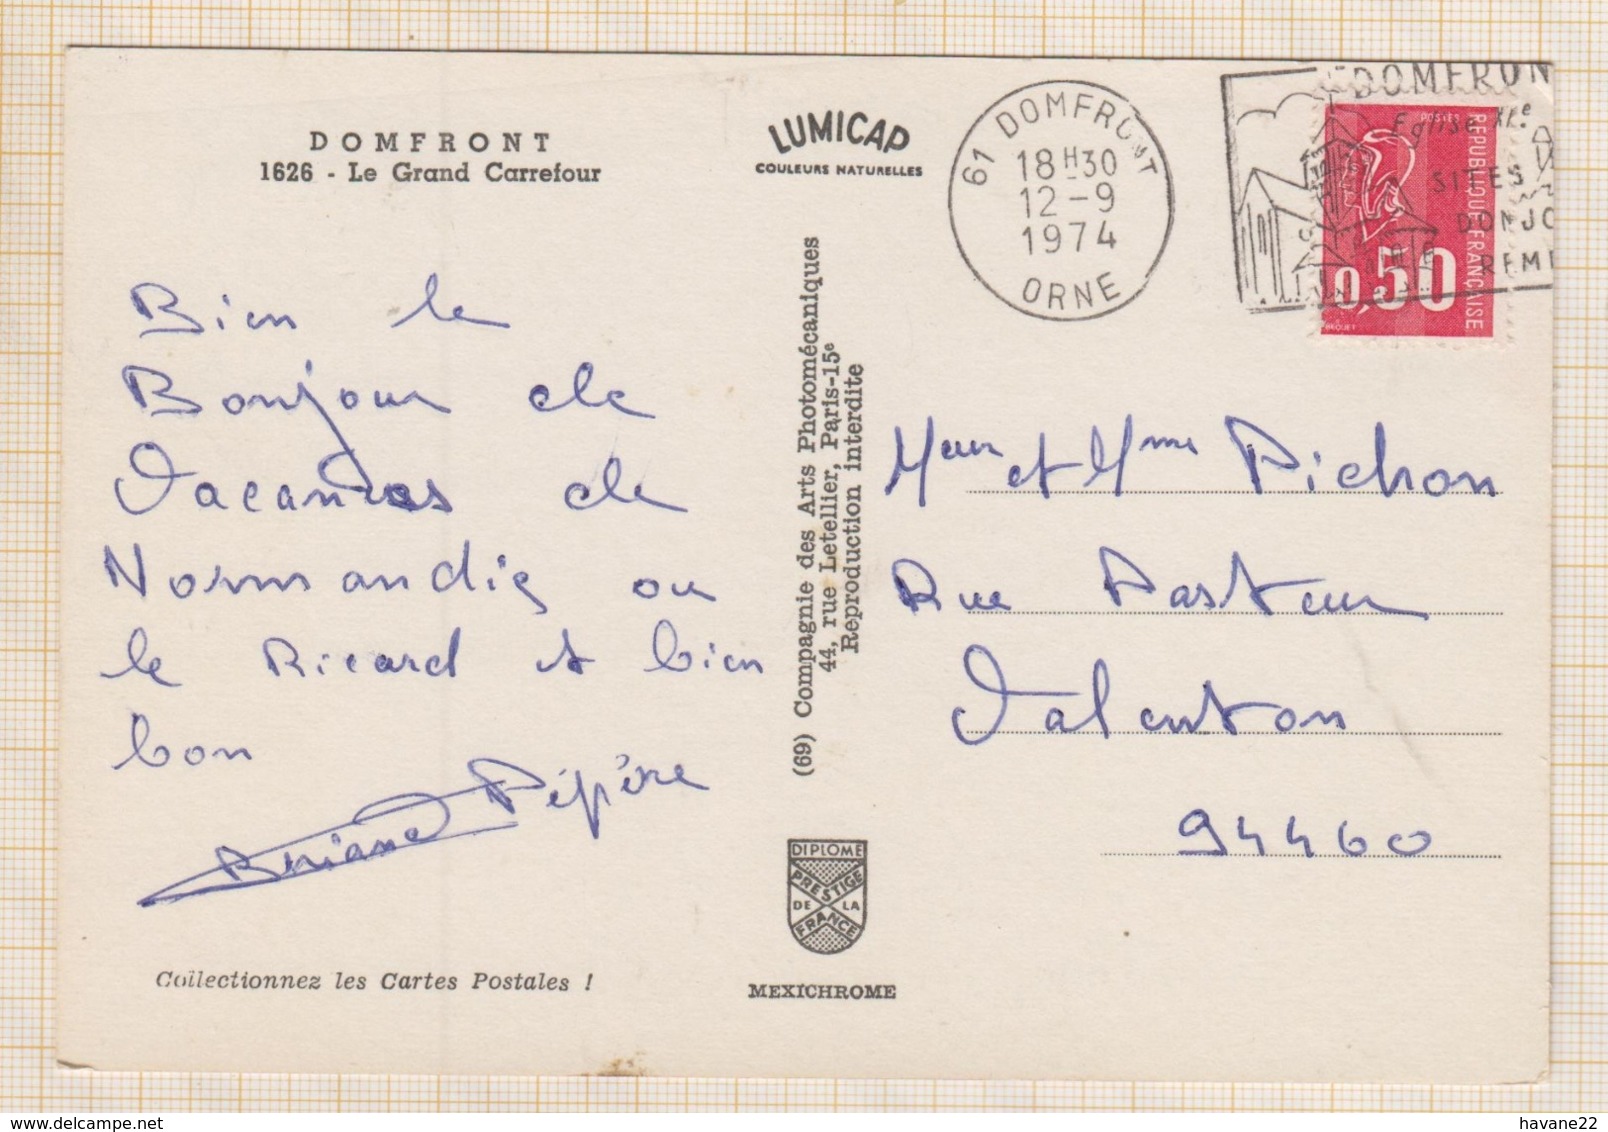 DOMFRONT
1626 - Le Grand Carrefour
LUMICAP
COULEURS NATURELLES
61 DOMFRONT
18H30
12-9
1974
ORNE
DOMFRON
Eglise XIe
SITES
DONJO
REMP
POSTES
REPUBLIQUE FRANÇAISE
0,50
BEQUET
Bien le
Bonjour de
Vacances de
Normandie ou
le Ricard et bien
bon
Pépère
Briand
Collectionnez les Cartes Postales !
(69) Compagnie des Arts Photomécaniques
44, rue Letellier, Paris-15e
Reproduction interdite
DIPLOME
PRESTIGE
DE LA
FRANCE
MEXICHROME
Meur et Mme Pichon
Rue Pasteur
Valenton
94460
havane22